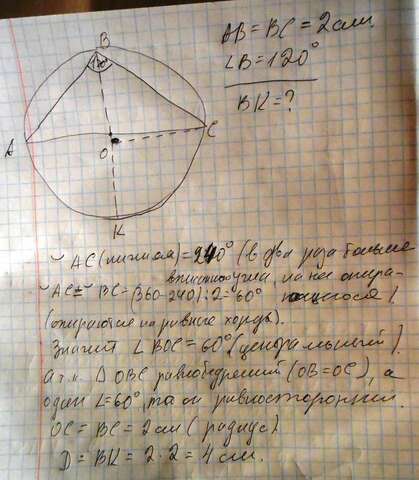 B
120°
A
C
O
K
AB = BC = 2 см.
∠B = 120°
BK = ?
◡ AC (нижняя) = 240° (в два раза больше
вписанного угла, на нее опира-
ющегося).
◡ AB = ◡ BC = (360-240):2 = 60°
(опираются на равные хорды).
Значит ∠ BOC = 60° (центральный).
а т.к. Δ OBC равнобедренный (OB = OC), а
один ∠ = 60°, то он равносторонний.
OC = BC = 2 см (радиус)
D = BK = 2 · 2 = 4 см.